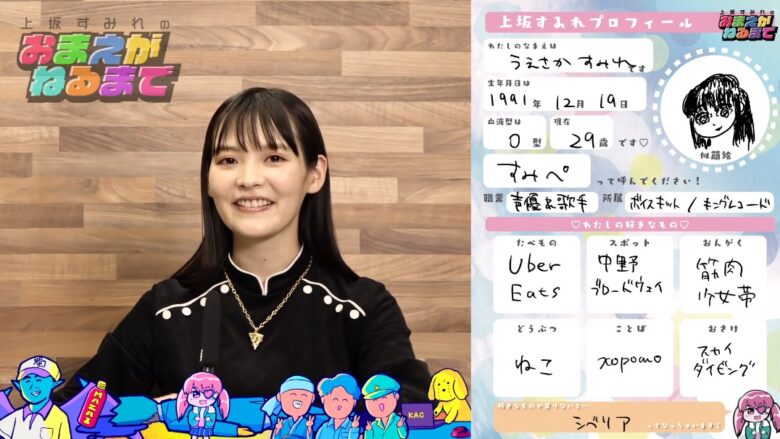 上坂すみれの
おまえが
ねるまで
MACAI
KAG
上坂すみれプロフィール
上坂すみれの
おまえが
ねるまで
わたしのなまえは
うえさか すみれです
生年月日は
1991年 12月 19日
血液型は
O型
現在
29歳 です♡
似顔絵
すみぺ
って呼んでください！
職業 声優&歌手 所属 ボイスキット / キングレコード
♡わたしの好きなもの♡
たべもの
Uber
Eats
スポット
中野
ブロードウェイ
おんがく
筋肉
少女帯
どうぶつ
ねこ
ことば
хорошо
おさけ
スカイ
ダイビング
シベリア
ってなっちゃいます！